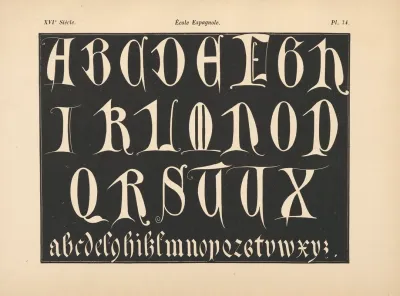 XVIᵉ Siècle. École Espagnole. Pl. 14
A B C D E E G h
I K L M N O P
Q R S T U X
abcdefghiklmnopqrstvwxyz.